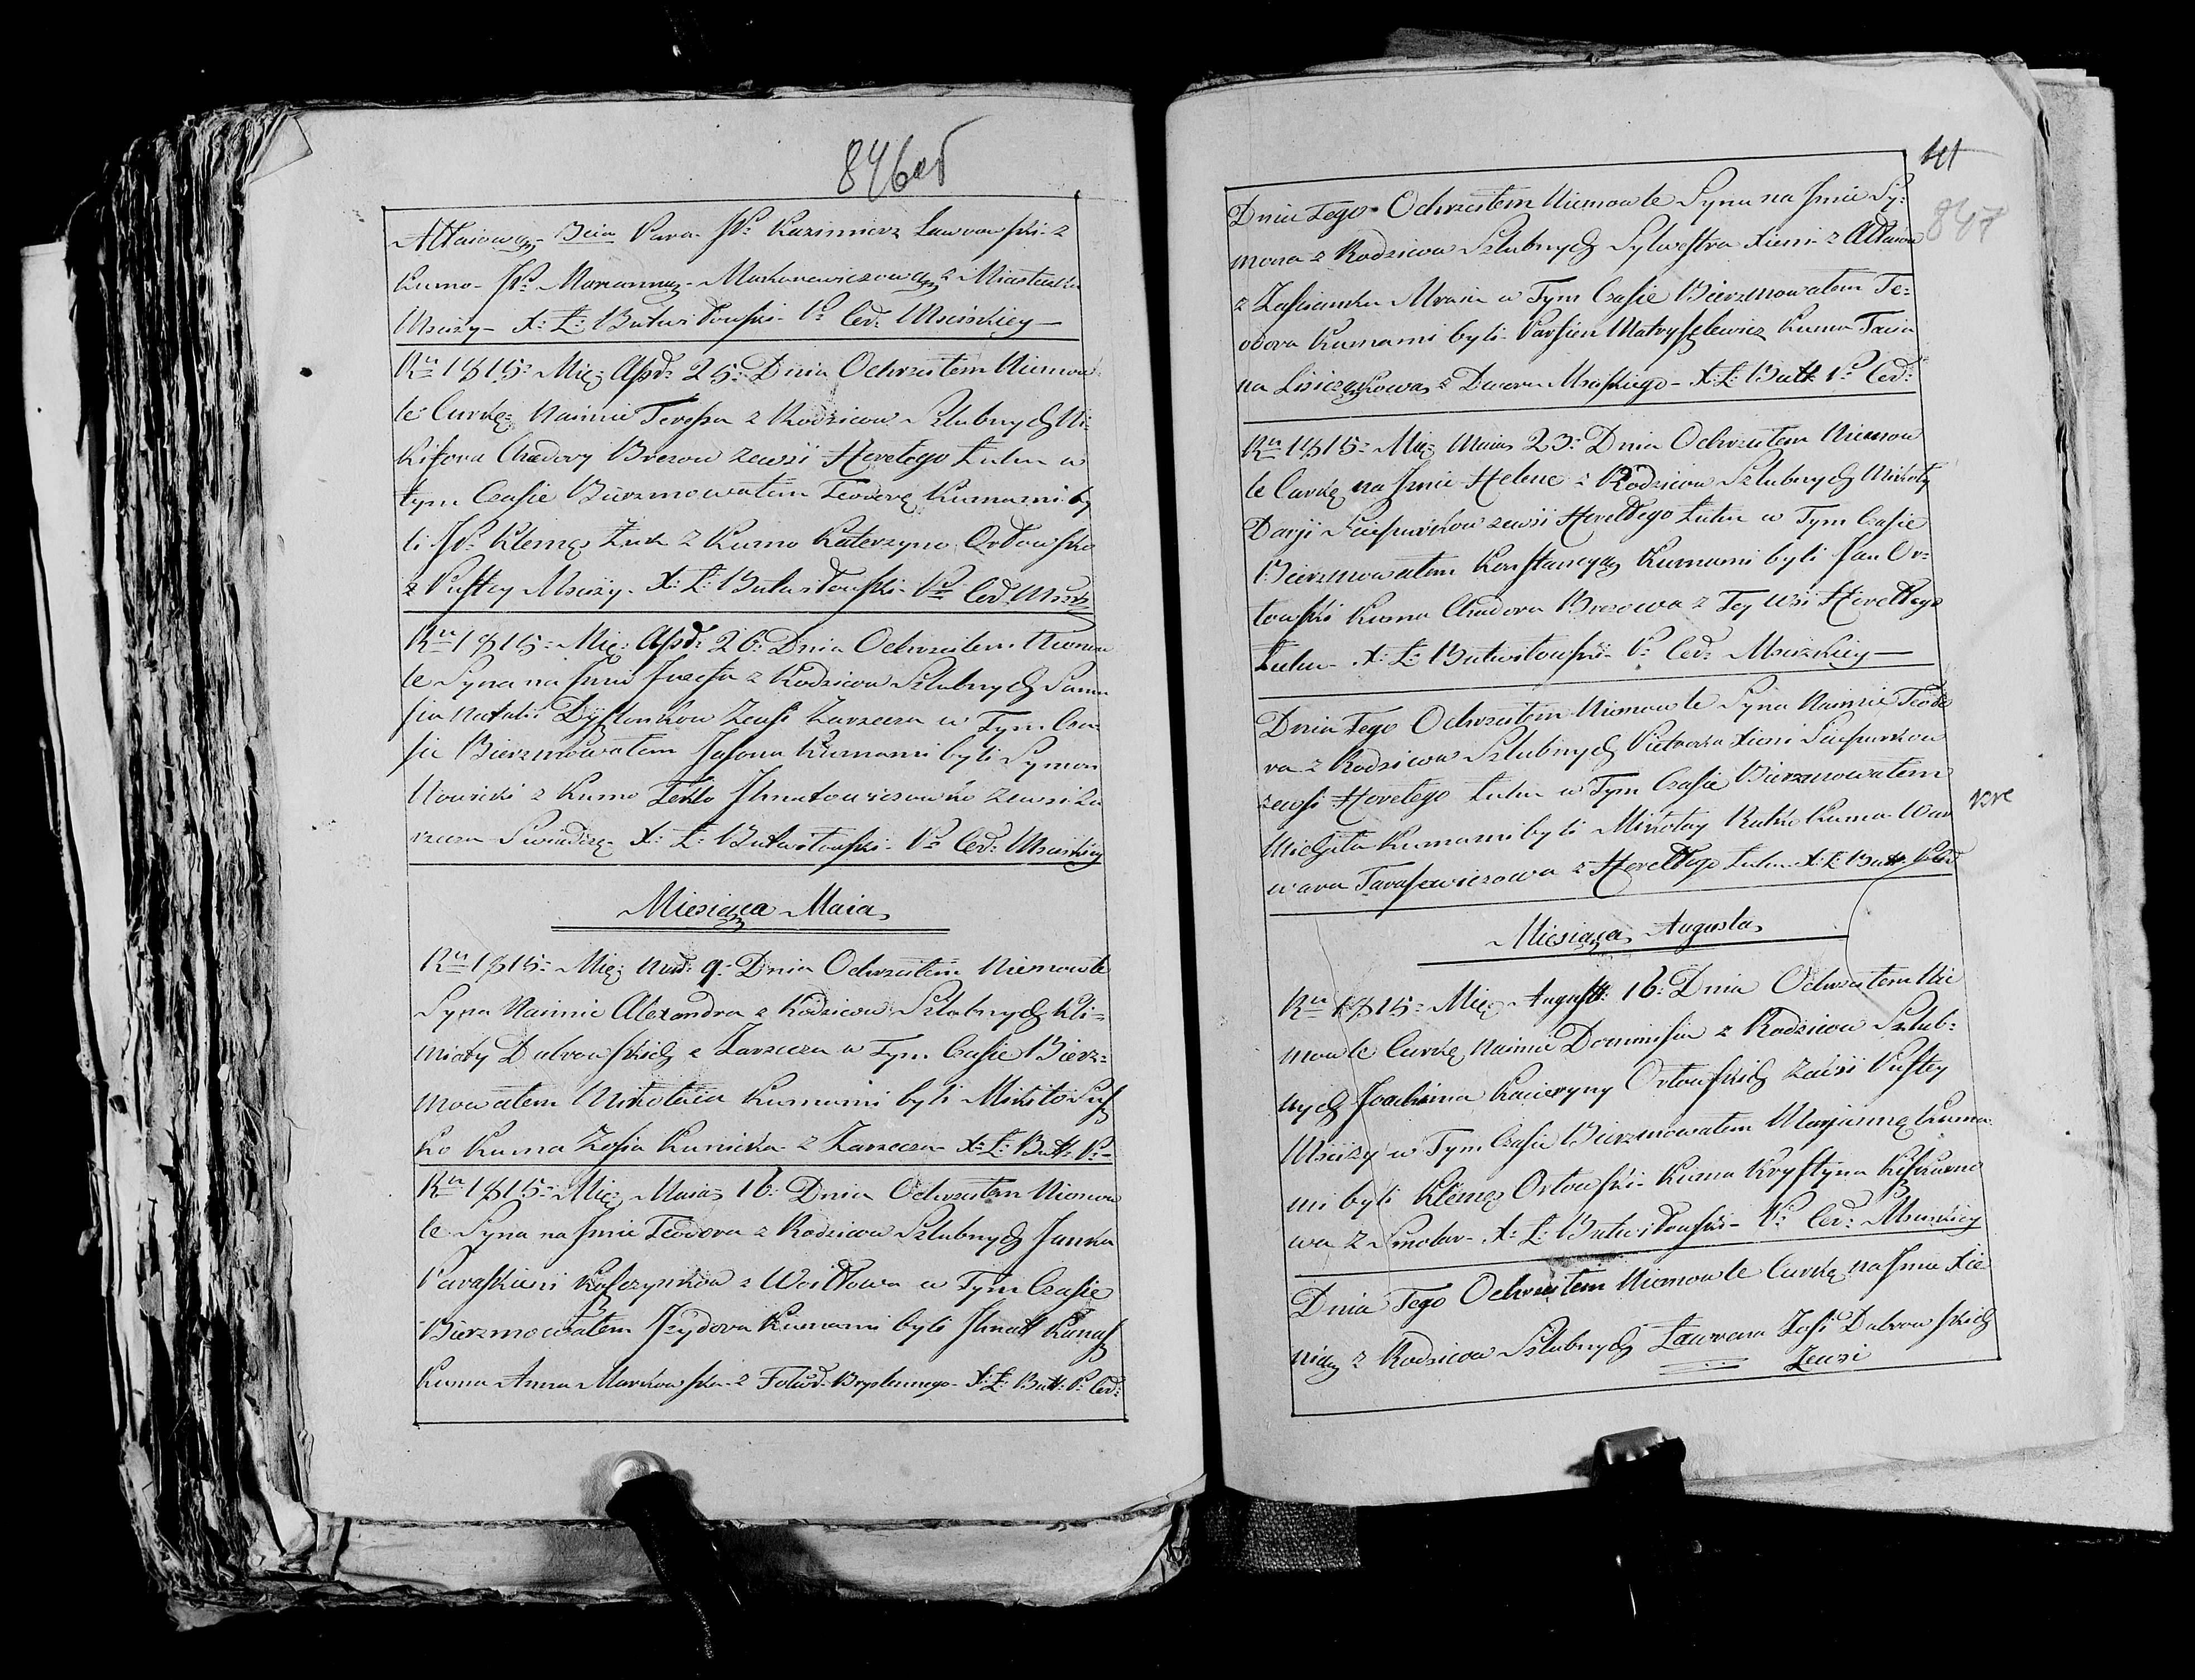 846об
Altaiową. 2cia Para JP: Kazimierz Ławrowski z
Kumo JP: Maryanną Markanewiczową z Miasteczka
Mscizy X: Ł: Butwiłowski P: Cer: Mscizkiey
Ru 1815: Mię: Apr: 25: Dnia Ochrzciłem Niemow
le Curkę Naimie Teressa z Rodzicow Szlubnych Ni-
kifora Chwedory Brezow zewsi Horełego Ługu w
tym Czasie Bierzmowałem Teodorę Kumami by
li JP: Klemęs Żuk z Kumo Katerzyno Orłowsko
z Pustey Mscizy X: Ł: Butwiłowski P: Cer: Mscizk
Ru 1815: Mię: Apr: 26: Dnia Ochrzciłem Niemow
le Syna na Jmie Jozefa z Rodzicow Szlubnych Sam
sia Natalii Dyszlonkow Zewsi Zarzecza w Tym Cza-
sie Bierzmowałem Jasona Kumami byli Symon
Nowicki z Kumo Teklo Jhnatowiczowko zewsi Za
rzecza Swiadczę X: Ł: Butwiłowski P: Cer: Mscizkiey
Miesiąca Maia
Ru 1815: Mię: 9: Dnia Ochrzciłem Niemowle
Syna Naimie Alexandra z Rodzicow Szlubnych Kli-
miaty Dubrowskich z Zarzecza w Tym Czasie Bierz-
mowałem Mikołaia Kumami byli Mikito Susz
ko Kuma Zofia Kunicka z Zarzecza X: Ł: Butt: P:
Ru 1815: Mię: Maia 16: Dnia Ochrzciłem Niemow
le Syna na Jmie Teodora z Rodzicow Szlubnych Janka
Paraskieui Kaszczynkow z Wosiłowa w Tym Czasie
Bierzmowałem Jzydora Kumami byli Jhnatt Kunasz
Kuma Anna Markowska z Folw: X: Ł: Butt: P: Cer:
41
847
Dnia Tego Ochrzciłem Niemowle Syna na Jmie Sy-
mona z Rodzicow Szlubnych Sylwestra Xieni z Ałtaiow
z Zascianku Mraia w Tym Czasie Bierzmowałem Te-
odora Kumami byli Parfien Matryszlewicz Kuma Tacia
na Lisiczonkowa z Dworu Mraiskiego X: Ł: Butt: P: Cer:
Ru 1815: Mię: Maia 23: Dnia Ochrzciłem Niemow
le Curkę na Jmie Helene z Rodzicow Szlubnych Mikoły
Daryi Sciepurkow zewsi Horełłego Ługu w Tym Czasie
Bierzmowałem Konstancyą Kumami byli Jan Or-
łowski Kuma Chwdora Brezowa z Tey Wsi Horełłego
Ługu X: Ł: Butwiłowski P: Cer: Mscizkiey
Dnia Tego Ochrzciłem Niemowle Syna Naimie Teodo
ra z Rodzicow Szlubnych Pietruka Xieni Sciepurkow
zewsi Horełego Ługu w Tym Czasie Bierzmowałem
Nichita Kumami byli Mikołay Rutko Kuma War
wara Tarasewiczowa z Horełłego Ługu X: Ł: Butt: P: Cer
Miesiąca Augusta
Ru 1815: Mię: August: 16: Dnia Ochrzciłem Nie
mowle Curkę naimie Dominisia z Rodzicow Szlub-
nych Joachima Kacieryny Orłowskich Zewsi Pustey
Mscizy w Tym Czasie Bierzmowałem Maryannę Kuma
mi byli Klemęs Orłowski Kuma Krystyna
wa z Smolar X: Ł: Butwiłowski P: Cer: Mscizkiey
Dnia Tego Ochrzciłem Niemowle Curkę na Jmie Xie
nią z Rodzicow Szlubnych Ławrena Zosi Dubrowskich
Zewsi